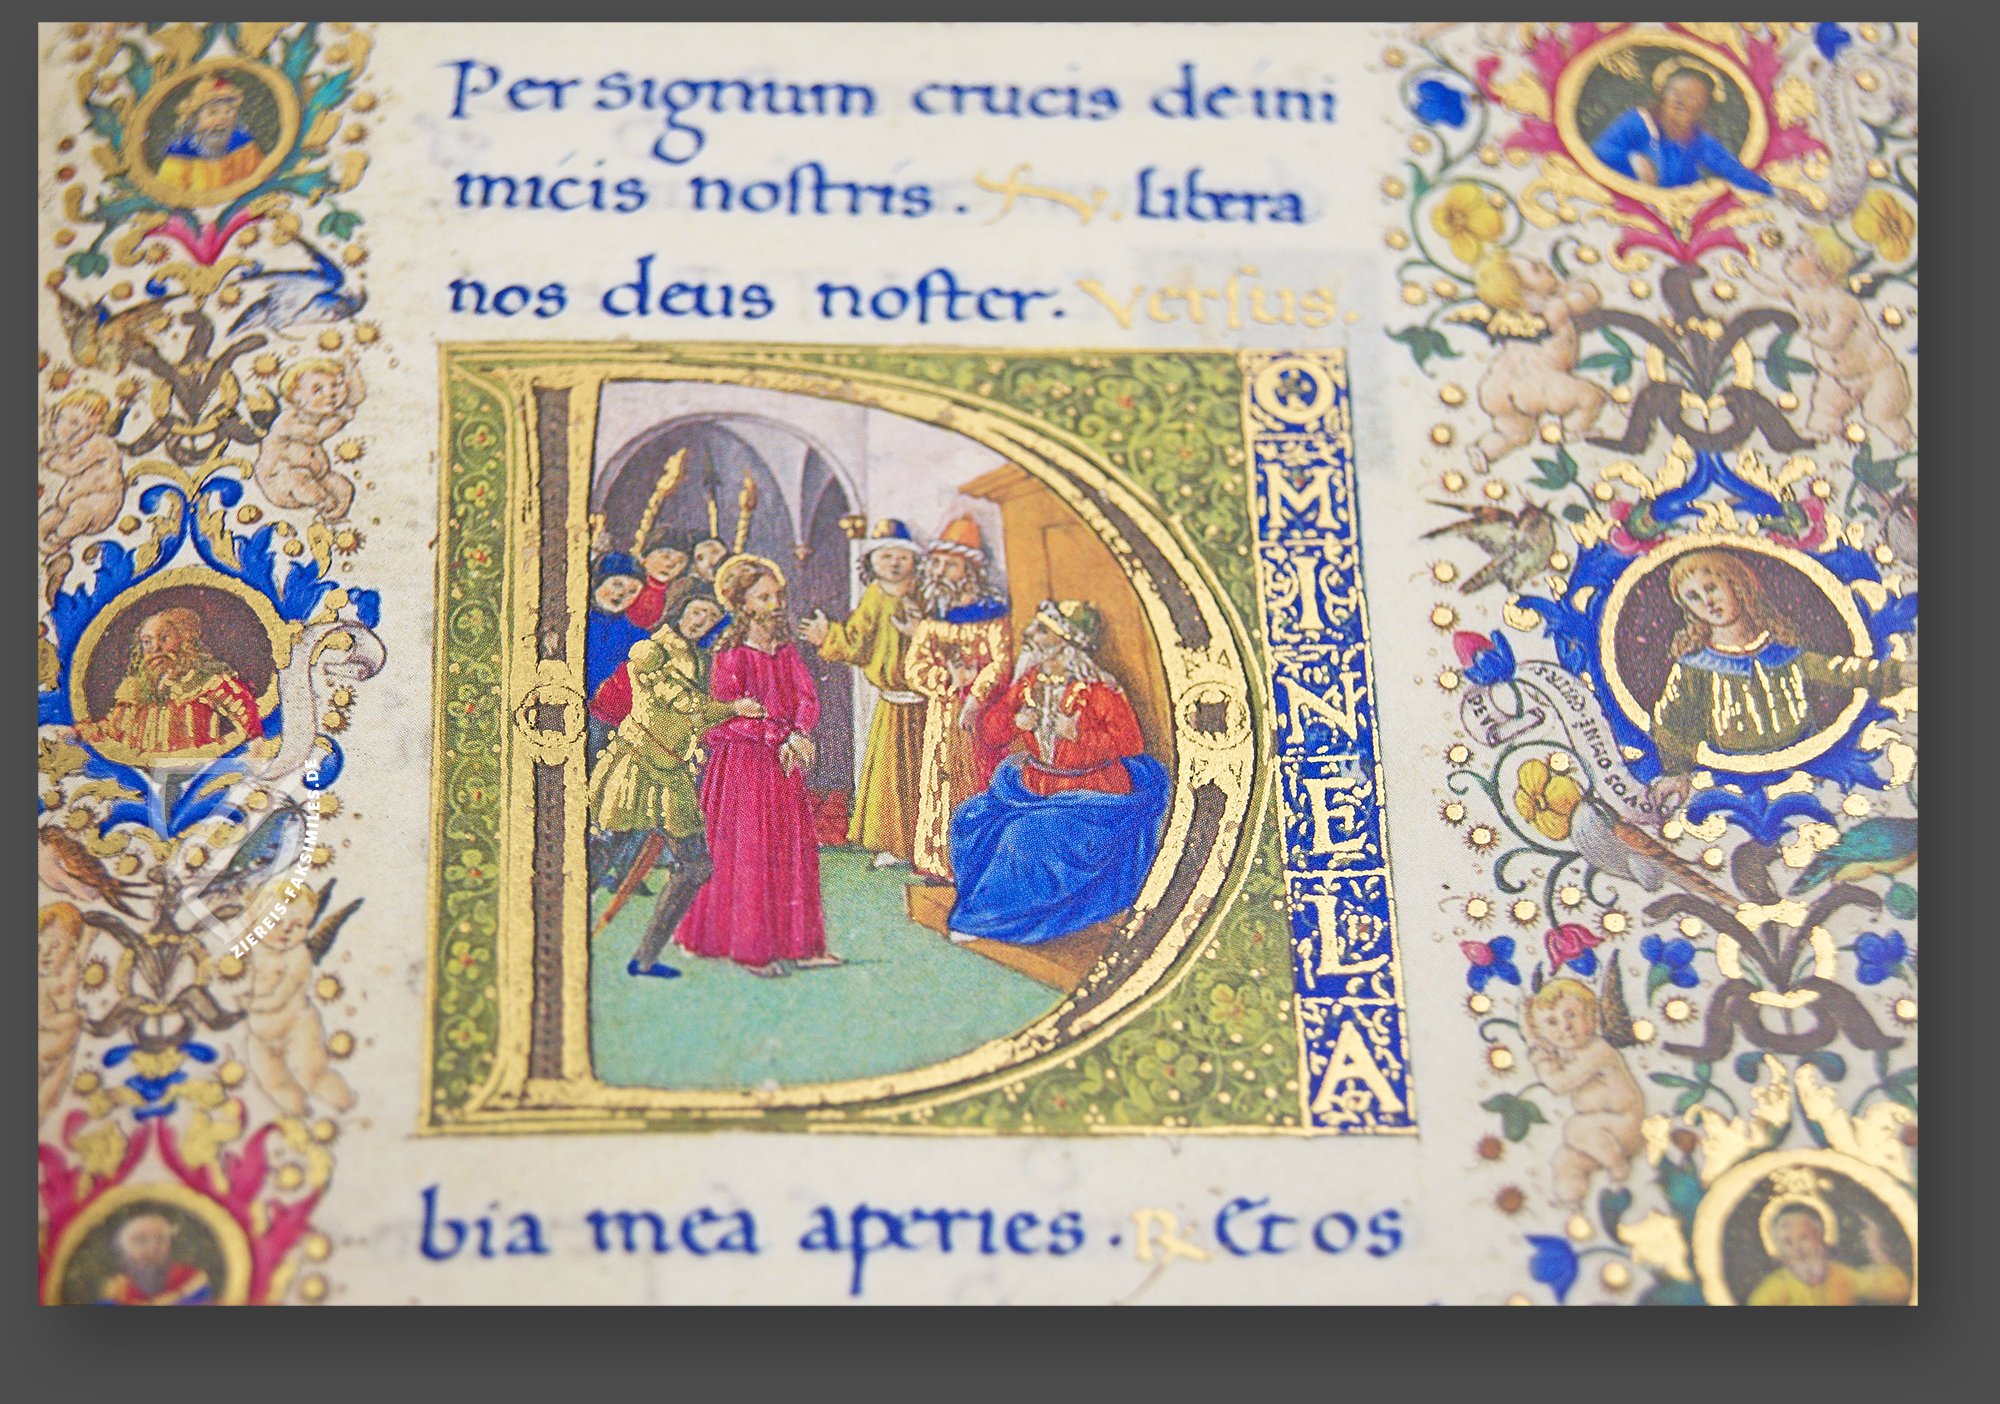 Per signum crucis de ini
micis nostris. V. libera
nos deus noster. Versus.
D
OMI
NE
LA
bia mea aperies. R Et os
ZIEREIS-FAKSIMILES.DE